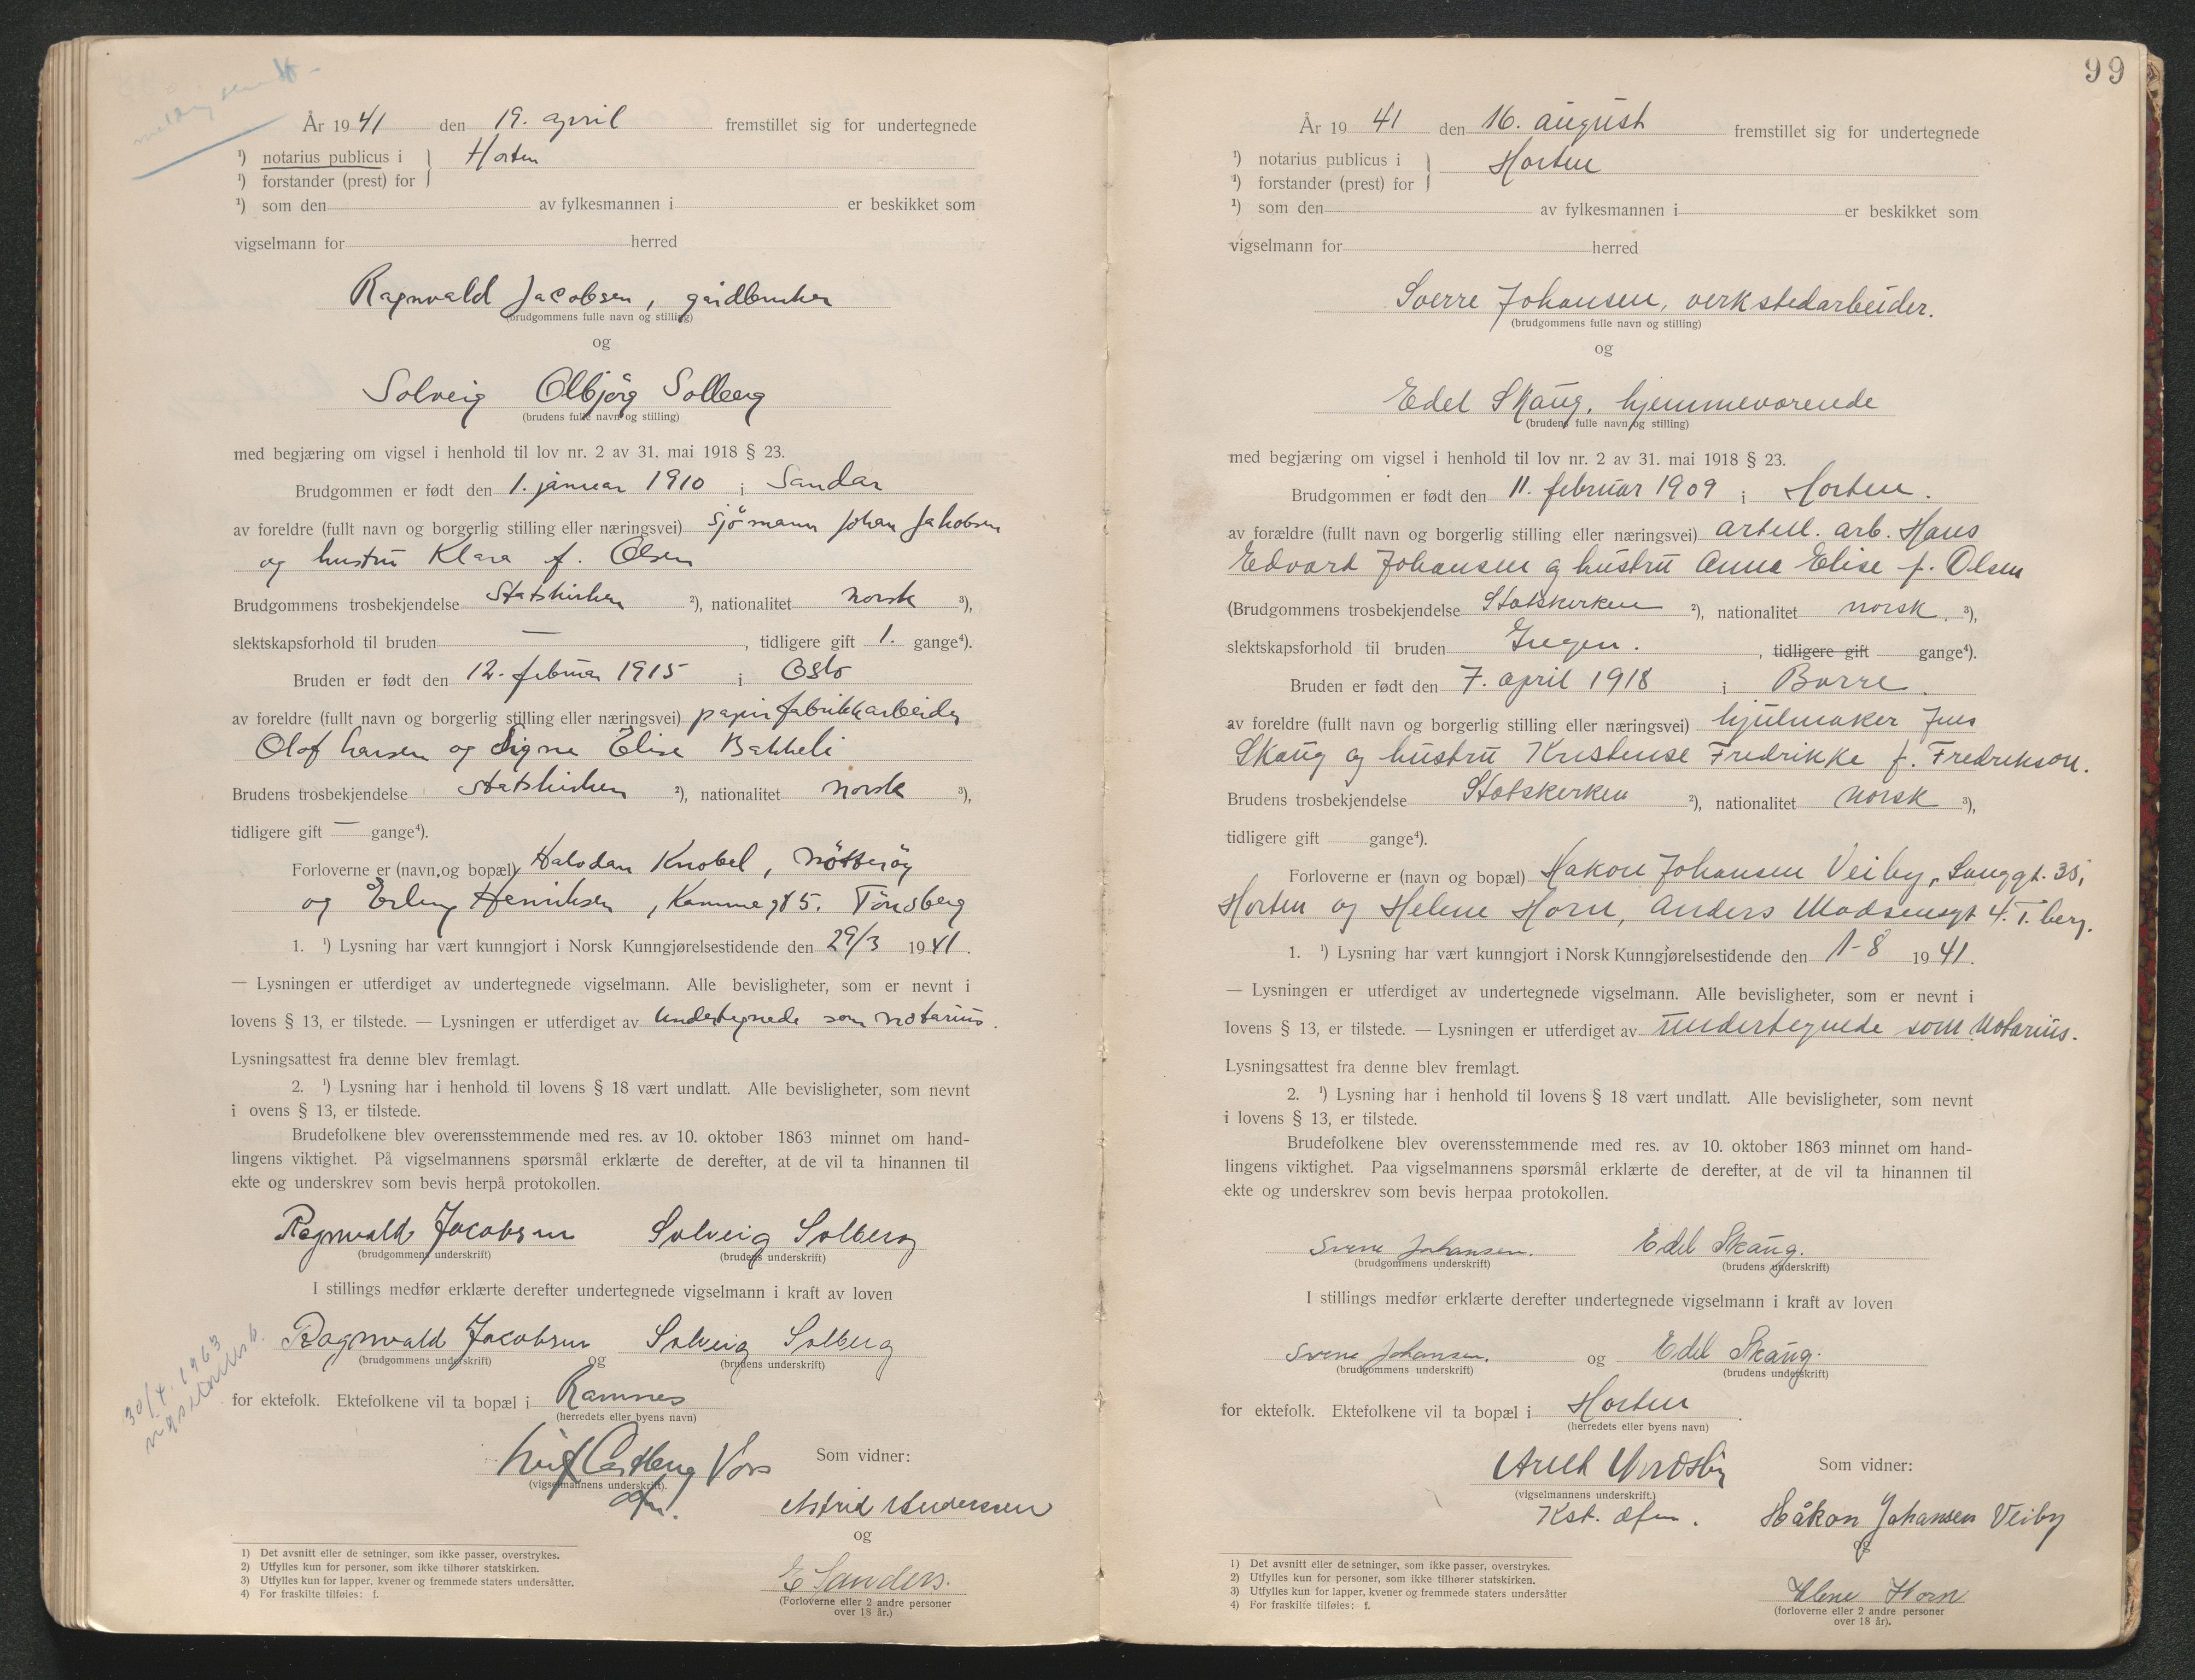 melding sendt
År 1941 den 19. april fremstillet sig for undertegnede
¹) notarius publicus i } Horten
¹) forstander (prest) for
¹) som den av fylkesmannen i er beskikket som
vigselmann for herred
Ragnvald Jacobsen, gårdbruker
(brudgommens fulle navn og stilling)
og
Solveig Olbjörg Solberg
(brudens fulle navn og stilling)
med begjæring om vigsel i henhold til lov nr. 2 av 31. mai 1918 § 23.
Brudgommen er født den 1. januar 1910 i Sandar
av foreldre (fullt navn og borgerlig stilling eller næringsvei) sjömann Johan Jakobsen
og hustru Klara f. Olsen
Brudgommens trosbekjendelse Statskirken ²), nationalitet norsk ³),
slektskapsforhold til bruden — , tidligere gift 1. gange⁴).
Bruden er født den 12. februar 1915 i Oslo
av foreldre (fullt navn og borgerlig stilling eller næringsvei) papirfabrikkarbeider
Olof Larsen og Signe Elise Bakkeli
Brudens trosbekjendelse Statskirken ²), nationalitet norsk ³),
tidligere gift — gange⁴).
Forloverne er (navn og bopæl) Halvdan Knobel, Nötteröy
og Erling Henriksen, Kammegt 5. Tönsberg
1. ¹) Lysning har vært kunngjort i Norsk Kunngjørelsestidende den 29/3 1941.
— Lysningen er utferdiget av undertegnede vigselmann. Alle bevisligheter, som er nevnt i
lovens § 13, er tilstede. — Lysningen er utferdiget av undertegnede som notarius.
Lysningsattest fra denne blev fremlagt.
2. ¹) Lysning har i henhold til lovens § 18 vært undlatt. Alle bevisligheter, som nevnt
i ovens § 13, er tilstede.
Brudefolkene blev overensstemmende med res. av 10. oktober 1863 minnet om hand-
lingens viktighet. På vigselmannens spørsmål erklærte de derefter, at de vil ta hinannen til
ekte og underskrev som bevis herpå protokollen.
Ragnvald Jacobsen Solveig Solberg
(brudgommens underskrift) (brudens underskrift)
I stillings medfør erklærte derefter undertegnede vigselmann i kraft av loven
Ragnvald Jacobsen og Solveig Solberg
(brudgommens underskrift) (brudens underskrift)
30/4. 1963
vigselattest b.
for ektefolk. Ektefolkene vil ta bopæl i Ramnes
(herredets eller byens navn)
Som vidner:
(vigselmannens underskrift).
Astrid Anderssen
og
E Sanders.
(Forloverne eller 2 andre personer
over 18 år.)
1) Det avsnitt eller de setninger, som ikke passer, overstrykes.
2) Utfylles kun for personer, som ikke tilhører statskirken.
3) Utfylles kun for lapper, kvener og fremmede staters undersåtter.
4) For fraskilte tilføies: f.
99
År 1941 den 16. august fremstillet sig for undertegnede
¹) notarius publicus i } Horten
¹) forstander (prest) for
¹) som den av fylkesmannen i er beskikket som
vigselmann for herred
Sverre Johansen, verkstedarbeider.
(brudgommens fulle navn og stilling)
og
Edel Skaug, hjemmeværende
(brudens fulle navn og stilling)
med begjæring om vigsel i henhold til lov nr. 2 av 31. mai 1918 § 23.
Brudgommen er født den 11. februar 1909 i Horten.
av forældre (fullt navn og borgerlig stilling eller næringsvei) artill. arb. Hans
Edvard Johansen og hustru Anna Elise f. Olsen
(Brudgommens trosbekjendelse Statskirken ²), nationalitet norsk. ³),
slektskapsforhold til bruden Ingen. , tidligere gift gange⁴).
Bruden er født den 7. april 1918 i Borre.
av foreldre (fullt navn og borgerlig stilling eller næringsvei) hjulmaker Jens
Skaug og hustru Kristense Fredrikke f. Fredrikson.
Brudens trosbekjendelse Statskirken ²), nationalitet norsk ³),
tidligere gift gange⁴).
Forloverne er (navn og bopæl) Hakon Johansen Veiby, Langgt. 35,
Horten og Helene Horn, Anders Madsensgt 4. T. berg.
1. ¹) Lysning har vært kunngjort i Norsk Kunngjørelsestidende den 1-8 1941.
— Lysningen er utferdiget av undertegnede vigselmann. Alle bevisligheter, som er nevnt i
lovens § 13, er tilstede. — Lysningen er utferdiget av undertegnede som Notarius.
Lysningsattest fra denne blev fremlagt.
2. ¹) Lysning har i henhold til lovens § 18 vært undlatt. Alle bevisligheter, som nevnt
i lovens § 13, er tilstede.
Brudefolkene blev overensstemmende med res. av 10. oktober 1863 minnet om hand-
lingens viktighet. Paa vigselmannens spørsmål erklærte de derefter, at de vil ta hinannen til
ekte og underskrev som bevis herpaa protokollen.
Sverre Johansen. Edel Skaug.
(brudgommens underskrift) (brudens underskrift)
I stillings medfør erklærte derefter undertegnede vigselmann i kraft av loven
Sverre Johansen. og Edel Skaug.
(brudgommens underskrift) (brudens underskrift)
for ektefolk. Ektefolkene vil ta bopæl i Horten
(herredets eller byens navn)
Som vidner:
(vigselmannens underskrift.)
Kst. dfm. Håkon Johansen Veiby
og
Helene Horn
(forloverne eller 2 andre personer
over 18 år).
1) Det avsnitt eller de setninger, som ikke passer, overstrykes.
2) Utfylles kun for personer, som ikke tilhører statskirken.
3) Utfylles kun for lapper, kvener og fremmede staters undersåtter
4) For fraskilte tilføies: f.